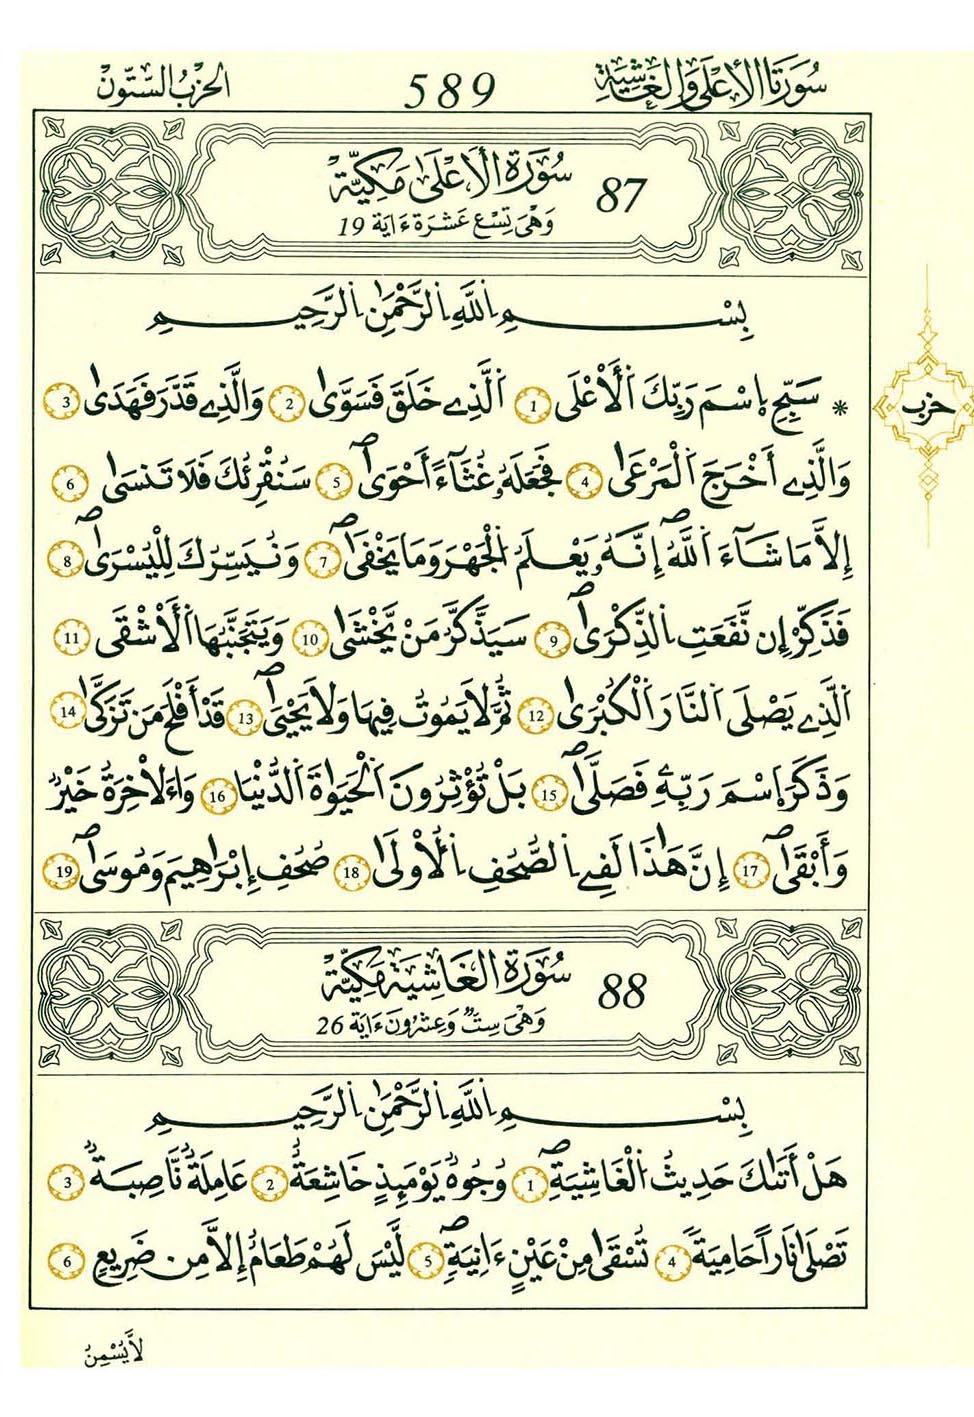 سُورَتَا الأَعْلَى وَالْغَاشِيَةِ 589 الحِزْبُ السِّتُّونْ
سُورَةُ الأَعْلَىٰ مَكِيَّةٌ 87
وَهْىَ تِسْعَ عَشْرَةَ ءَايَة 19
بِسْمِ اِ۬للَّهِ اِ۬لرَّحْمَٰنِ اِ۬لرَّحِيمِ
* سَبِّحِ اِ۪سْمَ رَبِّكَ اَ۬لْأَعْلَى 1 اَ۬لَّذِے خَلَقَ فَسَوَّىٰ 2 وَالَّذِے قَدَّرَ فَهَدَىٰ 3
حزب
وَالَّذِے أَخْرَجَ اَ۬لْمَرْعَىٰ 4 فَجَعَلَهُۥ غُثَآءً أَحْوَىٰۖ 5 سَنُقْرِئُكَ فَلَا تَنسَىٰ 6
إِلَّا مَا شَآءَ اَ۬للَّهُۖ إِنَّهُۥ يَعْلَمُ اُ۬لْجَهْرَ وَمَا يَخْفَىٰۖ 7 وَنُيَسِّرُكَ لِلْيُسْرَىٰۖ 8
فَذَكِّرِ إِن نَّفَعَتِ اِ۬لذِّكْرَىٰۖ 9 سَيَذَّكَّرُ مَنْ يَّخْشَىٰ 10 وَيَتَجَنَّبُهَا اَ۬لْأَشْقَى 11
اَ۬لَّذِے يَصْلَى اَ۬لنَّارَ اَ۬لْكُبْرَىٰ 12 ثُمَّ لَا يَمُوتُ فِيهَا وَلَا يَحْيَىٰۖ 13 قَدْ أَفْلَحَ مَن تَزَكَّىٰ 14
وَذَكَرَ اَ۪سْمَ رَبِّهِۦ فَصَلَّىٰۖ 15 بَلْ تُؤْثِرُونَ اَ۬لْحَيَوٰةَ اَ۬لدُّنْيَا 16 وَاَءَلْأخِرَةُ خَيْرٌ
وَأَبْقَىٰۖ 17 إِنَّ هَٰذَا لَفِے اِ۬لصُّحُفِ اِ۬لْأُولَىٰ 18 صُحُفِ إِبْرَٰهِيمَ وَمُوسَىٰۖ 19
سُورَةُ الغَاشِيَةِ مَكِيَّةٌ 88
وَهْىَ سِتٌّ وَعِشْرُونَ ءَايَة 26
بِسْمِ اِ۬للَّهِ اِ۬لرَّحْمَٰنِ اِ۬لرَّحِيمِ
هَلْ أَتَىٰكَ حَدِيثُ اُ۬لْغَاشِيَةِۖ 1 وُجُوهٌ يَوْمَئِذٍ خَاشِعَةٌ 2 عَامِلَةٌ نَّاصِبَةٌ 3
تَصْلَىٰ نَاراً حَامِيَةً 4 تُسْقَىٰ مِنْ عَيْنٍ ءَانِيَةٍۖ 5 لَّيْسَ لَهُمْ طَعَامٌ إِلَّا مِن ضَرِيعٍ 6
لَّا يُسْمِنُ